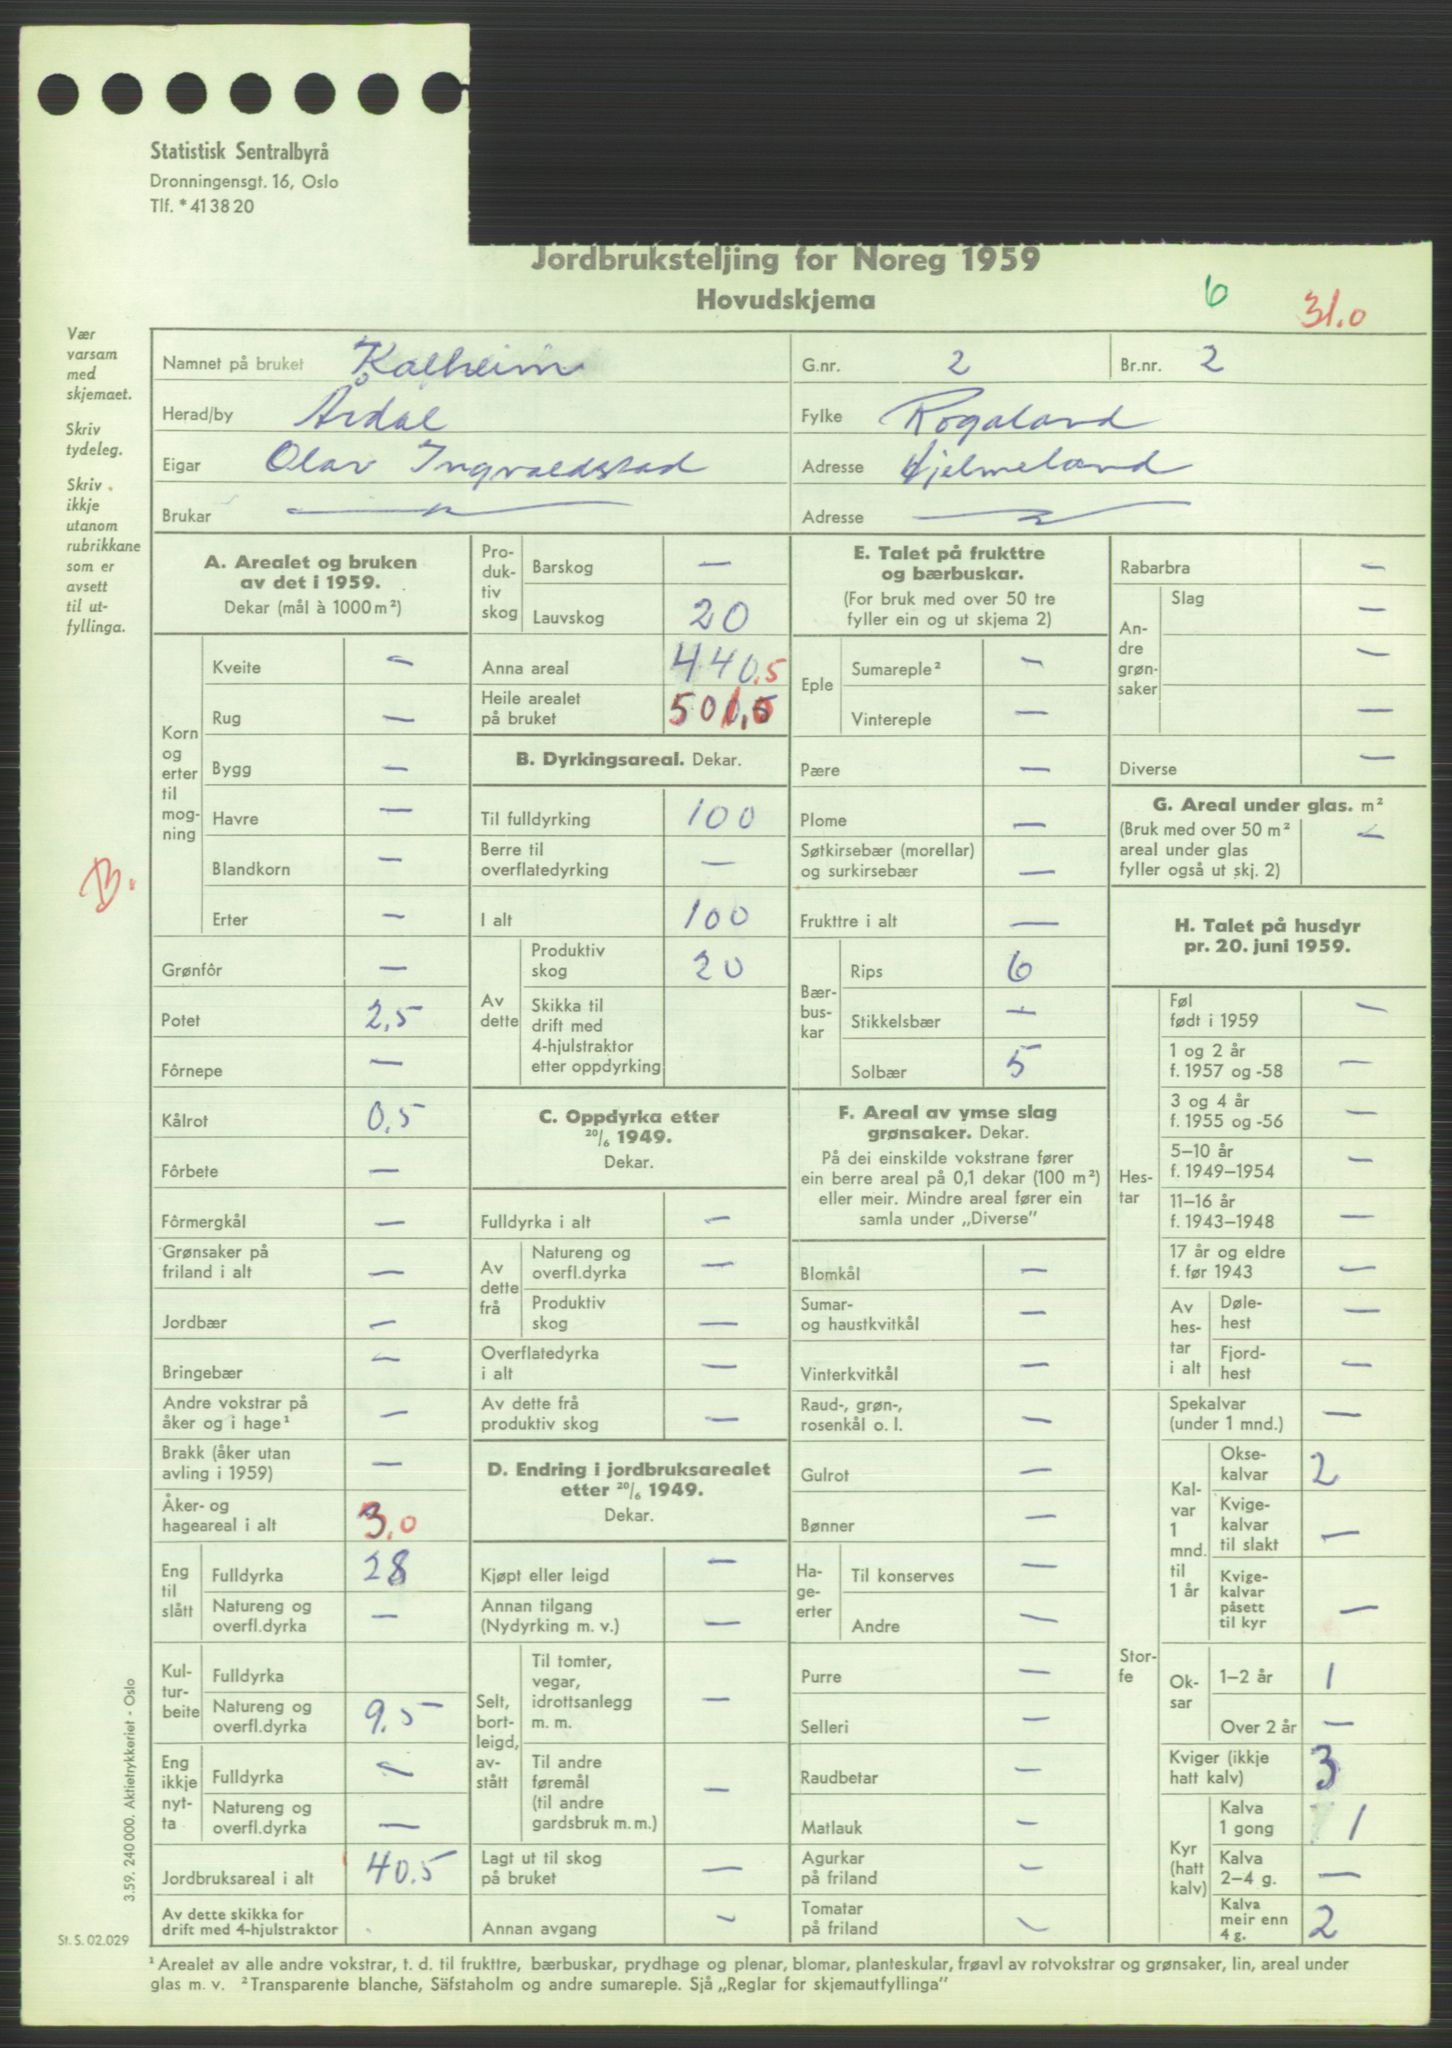 Statistisk Sentralbyrå
Dronningensgt. 16, Oslo
Tlf. *41 38 20
Jordbruksteljing for Noreg 1959
Hovudskjema
6
31.0
Vær
varsam
med
skjemaet.
Skriv
tydeleg.
Skriv
ikkje
utanom
rubrikkane
som er
avsett
til ut-
fyllinga.
B.
Namnet på bruket Kalheim G.nr. 2 Br.nr. 2
Herad/by Årdal Fylke Rogaland
Eigar Olav Ingvaldstad Adresse Hjelmeland
Brukar — " — Adresse — " —
A. Arealet og bruken
av det i 1959.
Dekar (mål à 1000 m²)
Korn og erter til mog-ning
Kveite —
Rug —
Bygg —
Havre —
Blandkorn —
Erter —
Grønfôr —
Potet 2,5
Fôrnepe —
Kålrot 0,5
Fôrbete —
Fôrmergkål —
Grønsaker på
friland i alt —
Jordbær —
Bringebær —
Andre vokstrar på
åker og i hage¹ —
Brakk (åker utan
avling i 1959) —
Åker- og
hageareal i alt 3,0
Eng til slått
Fulldyrka 28
Natureng og
overfl.dyrka —
Kul-tur-beite
Fulldyrka
Natureng og
overfl.dyrka 9.5
Eng ikkje nyt-ta
Fulldyrka —
Natureng og
overfl.dyrka —
Jordbruksareal i alt 40.5
Av dette skikka for
drift med 4-hjulstraktor
Pro-duk-tiv skog
Barskog —
Lauvskog 20
Anna areal 440.5
Heile arealet
på bruket 501.5
B. Dyrkingsareal. Dekar.
Til fulldyrking 100
Berre til
overflatedyrking —
I alt 100
Av dette
Produktiv
skog 20
Skikka til
drift med
4-hjulstraktor
etter oppdyrking
C. Oppdyrka etter
20/6 1949.
Dekar.
Fulldyrka i alt —
Av dette frå
Natureng og
overfl.dyrka —
Produktiv
skog —
Overflatedyrka
i alt —
Av dette frå
produktiv skog —
D. Endring i jordbruksarealet
etter 20/6 1949.
Dekar.
Kjøpt eller leigd —
Annan tilgang
(Nydyrking m. v.) —
Selt, bort-leigd, av-stått
Til tomter,
vegar,
idrottsanlegg
m. m. —
Til andre
føremål
(til andre
gardsbruk m. m.) —
Lagt ut til skog
på bruket —
Annan avgang —
E. Talet på frukttre
og bærbuskar.
(For bruk med over 50 tre
fyller ein og ut skjema 2)
Eple
Sumareple² —
Vintereple —
Pære —
Plome —
Søtkirsebær (morellar)
og surkirsebær —
Frukttre i alt —
Bær-bus-kar
Rips 6
Stikkelsbær —
Solbær 5
F. Areal av ymse slag
grønsaker. Dekar.
På dei einskilde vokstrane fører
ein berre areal på 0,1 dekar (100 m²)
eller meir. Mindre areal fører ein
samla under „Diverse”
Blomkål —
Sumar-
og haustkvitkål —
Vinterkvitkål —
Raud-, grøn-,
rosenkål o. l. —
Gulrot —
Bønner —
Ha-ge-erter
Til konserves —
Andre —
Purre —
Selleri —
Raudbetar —
Matlauk —
Agurkar
på friland —
Tomatar
på friland —
Rabarbra —
An-dre grøn-saker
Slag —
—
—
Diverse —
G. Areal under glas. m²
(Bruk med over 50 m²
areal under glas
fyller også ut skj. 2) —
H. Talet på husdyr
pr. 20. juni 1959.
Hes-tar
Føl
født i 1959 —
1 og 2 år
f. 1957 og -58 —
3 og 4 år
f. 1955 og -56 —
5–10 år
f. 1949–1954 —
11–16 år
f. 1943–1948 —
17 år og eldre
f. før 1943 —
Av hes-tar i alt
Døle-
hest —
Fjord-
hest —
Stor-fe
Spekalvar
(under 1 mnd.) —
Kal-var 1 mnd. til 1 år
Okse-
kalvar 2
Kvige-
kalvar
til slakt —
Kvige-
kalvar
påsett
til kyr —
Ok-sar
1–2 år 1
Over 2 år —
Kviger (ikkje
hatt kalv) 3
Kyr (hatt kalv)
Kalva
1 gong 1
Kalva
2–4 g. —
Kalva
meir enn
4 g. 2
3.59. 240 000. Aktietrykkeriet - Oslo
St. S. 02.029
¹ Arealet av alle andre vokstrar, t. d. til frukttre, bærbuskar, prydhage og plenar, blomar, planteskular, frøavl av rotvokstrar og grønsaker, lin, areal under
glas m. v. ² Transparente blanche, Säfstaholm og andre sumareple. Sjå „Reglar for skjemautfyllinga”